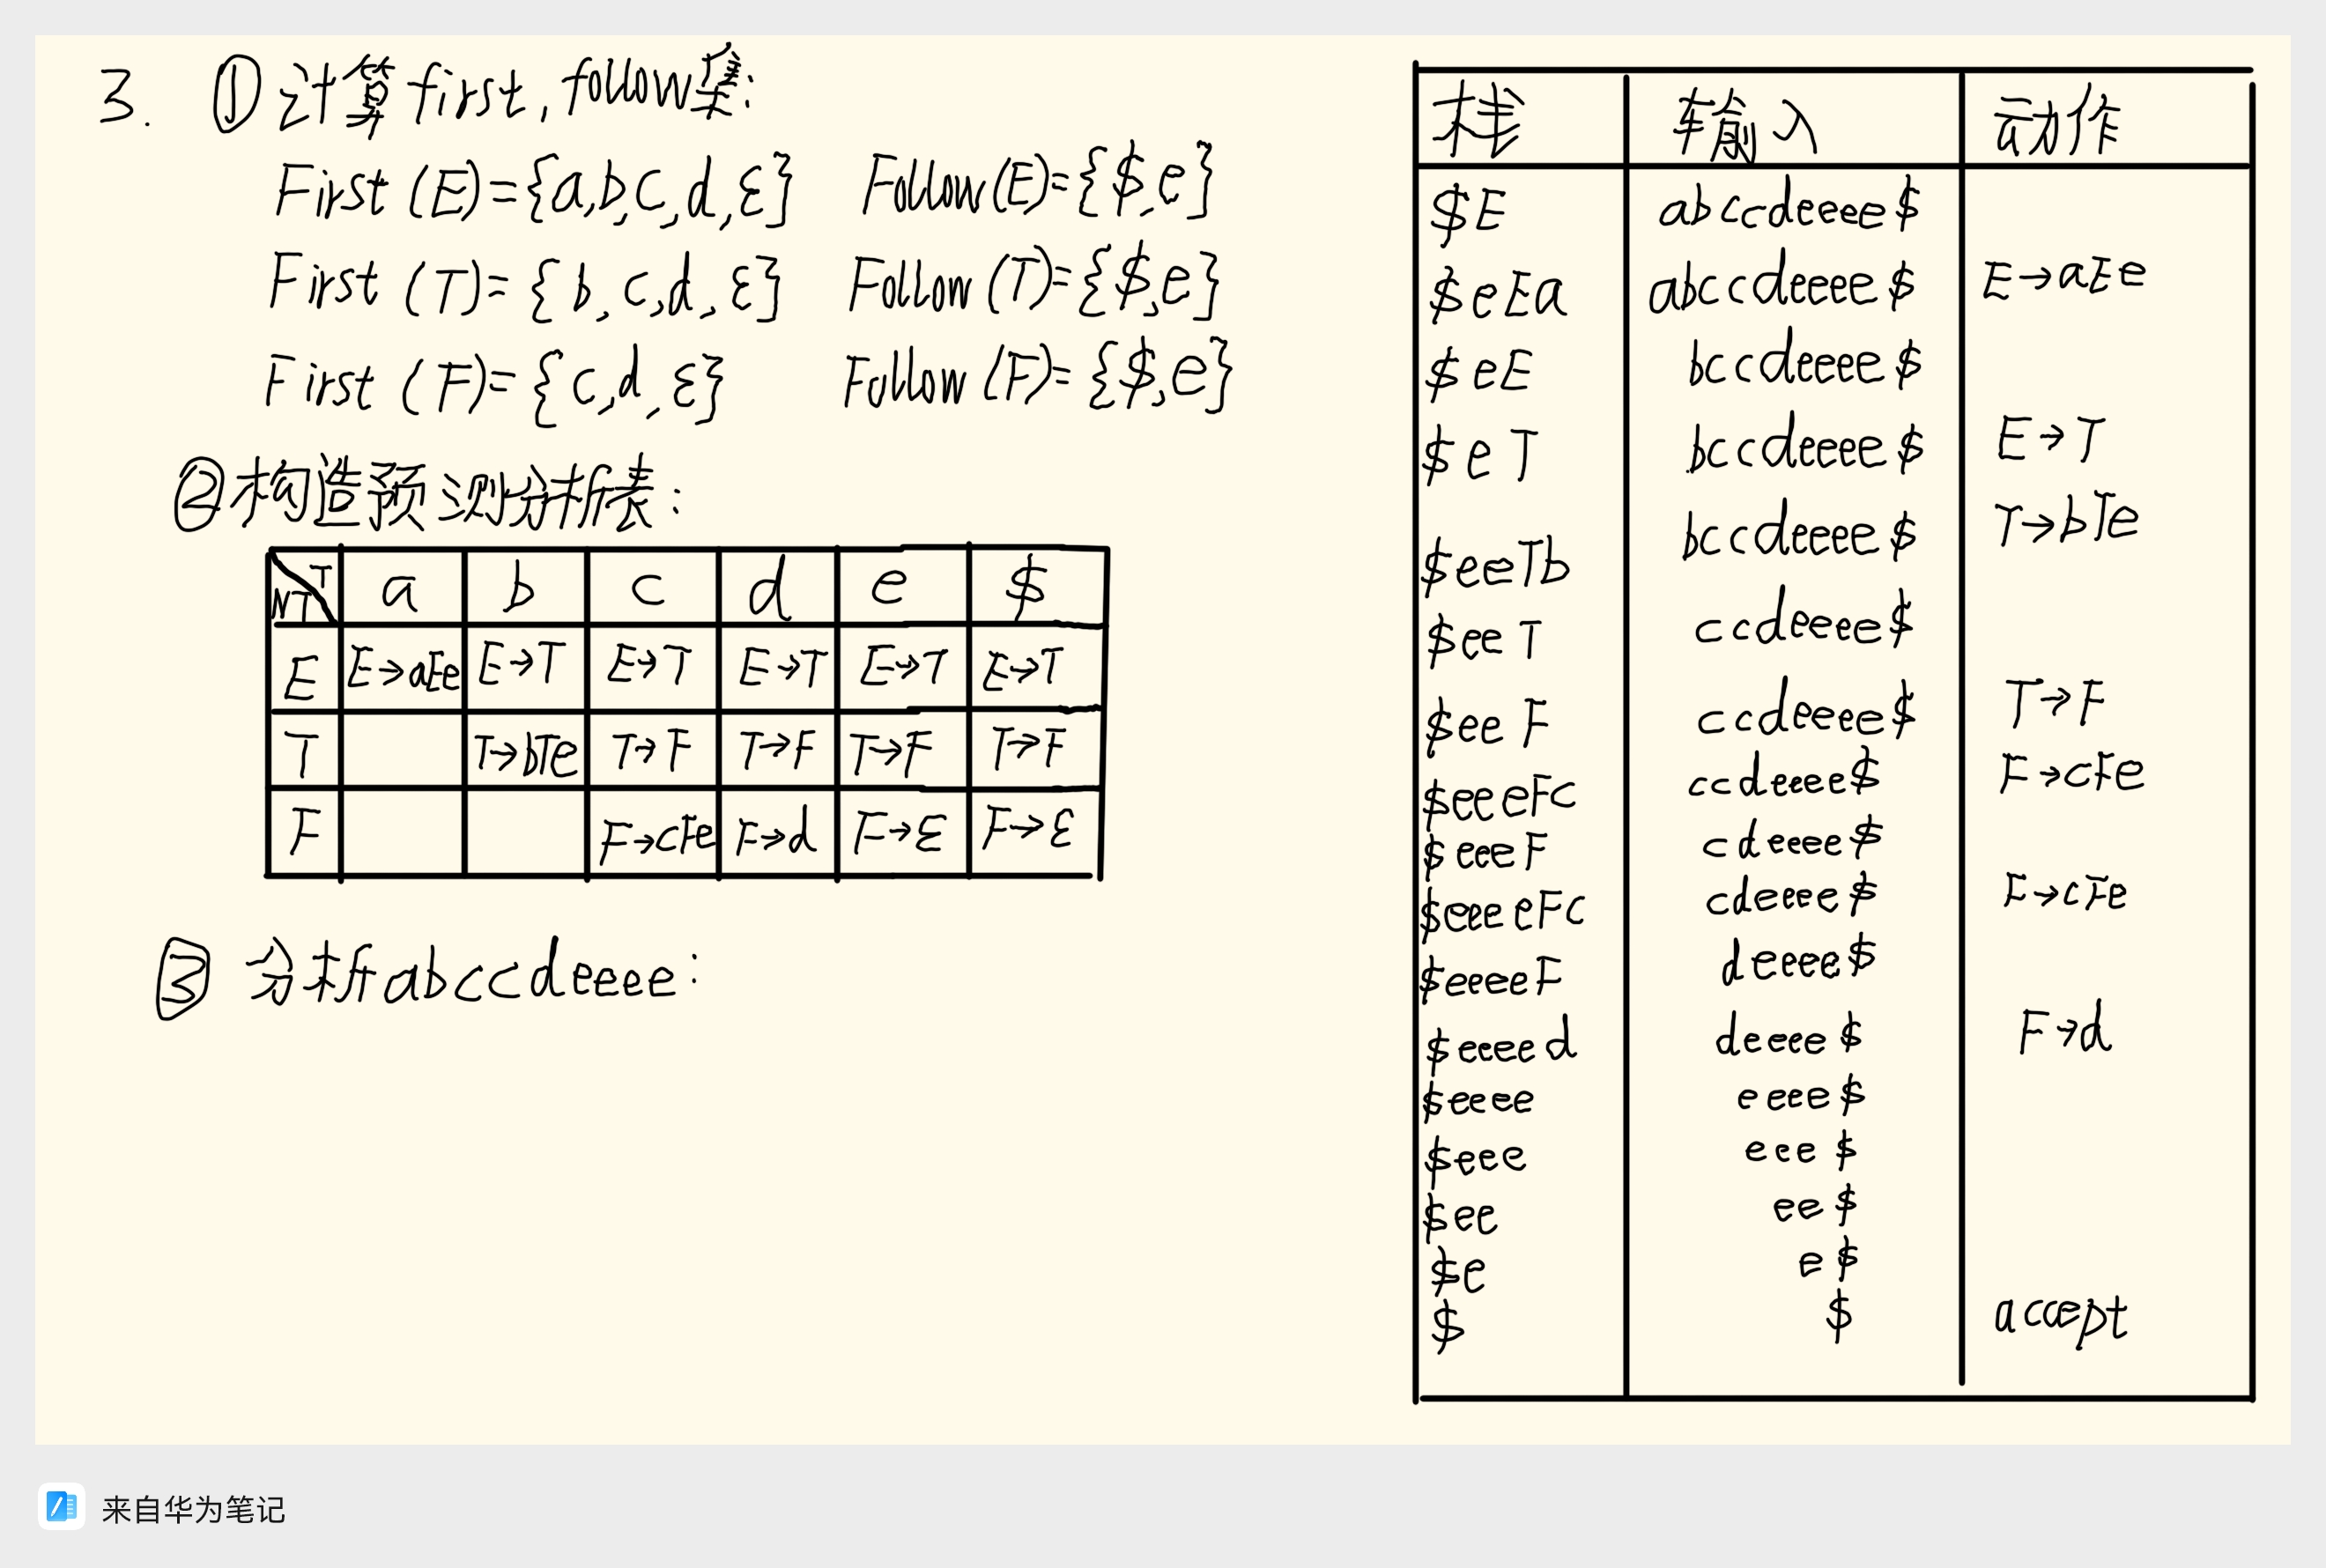 3. ①计算first,follow集:
First(E)={a,b,c,d,ε} Follow(E)={$,e}
First(T)={b,c,d,ε} Follow(T)={$,e}
First(F)={c,d,ε} Follow(F)={$,e}
②构造预测分析表:
NT T a b c d e $
E E→aEe E→T E→T E→T E→T E→T
T T→bTe T→F T→F T→F T→F
F F→cFe F→d F→ε F→ε
③分析abccdeeee:
栈 输入 动作
$E abccdeeee$
$eEa abccdeeee$ E→aEe
$eE bccdeeee$
$eT bccdeeee$ E→T
$eeTb bccdeeee$ T→bTe
$eeT ccdeeee$
$eeF ccdeeee$ T→F
$eeeFc ccdeeee$ F→cFe
$eeeF cdeeee$
$eeeeFc cdeeee$ F→cFe
$eeeeF deeee$
$eeeed deeee$ F→d
$eeee eeee$
$eee eee$
$ee ee$
$e e$
$ $ accept
来自华为笔记